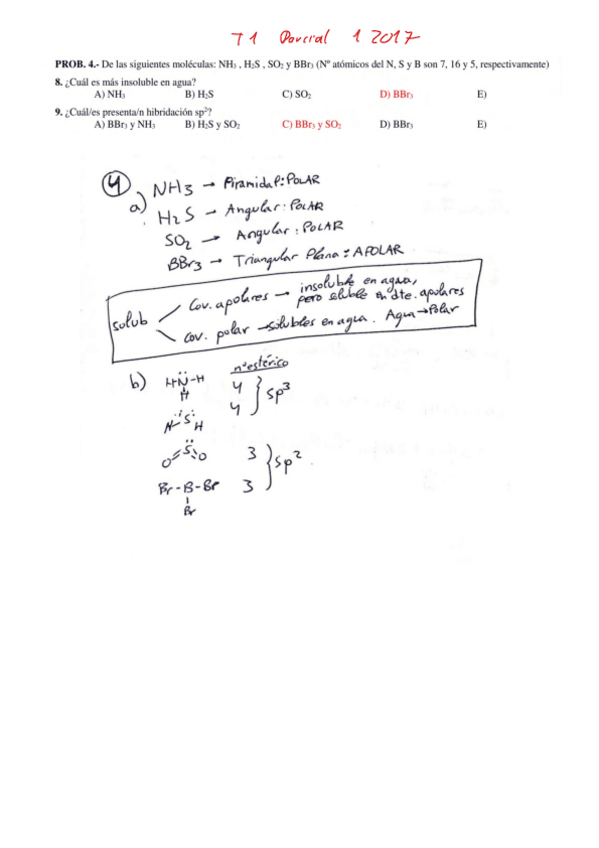 T1 Parcial 1 2017
PROB. 4.- De las siguientes moléculas: NH₃ , H₂S , SO₂ y BBr₃ (Nº atómicos del N, S y B son 7, 16 y 5, respectivamente)
8. ¿Cuál es más insoluble en agua?
A) NH₃ B) H₂S C) SO₂ D) BBr₃ E)
9. ¿Cuál/es presenta/n hibridación sp²?
A) BBr₃ y NH₃ B) H₂S y SO₂ C) BBr₃ y SO₂ D) BBr₃ E)
4
a) NH3 → Piramidal: POLAR
H2S → Angular: POLAR
SO2 → Angular: POLAR
BBr3 → Triangular Plana: APOLAR
solub
Cov. apolares → insoluble en agua,
pero soluble en dte. apolares
cov. polar → solubles en agua. Agua → Polar
nº estérico
b) H-N-H 4
H
H S H 4
sp³
O=S O 3
Br-B-Br 3
Br
sp².